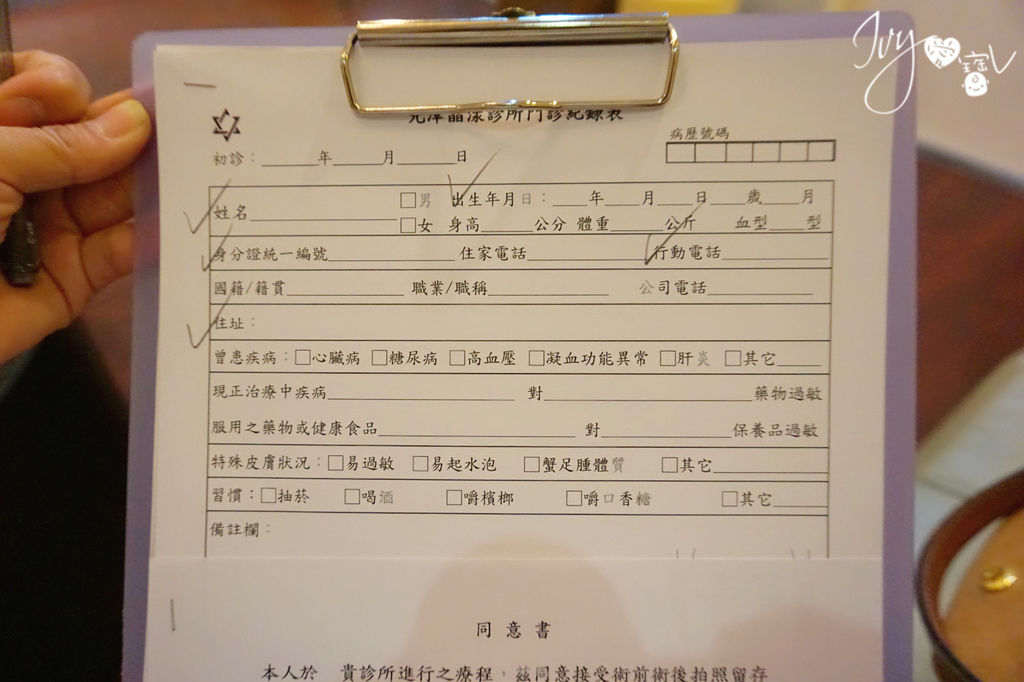 Ivy 愛 寶
光澤晶漾診所門診紀錄表
病歷號碼
初診：______年_____月______日
姓名________________ □男 出生年月日：____年____月____日____歲____月
□女 身高______公分 體重______公斤 血型____型
身分證統一編號______________ 住家電話______________ 行動電話____________
國籍/籍貫_____________ 職業/職稱_____________ 公司電話____________
住址：
曾患疾病：□心臟病 □糖尿病 □高血壓 □凝血功能異常 □肝炎 □其它_____
現正治療中疾病____________________ 對______________________藥物過敏
服用之藥物或健康食品____________________ 對______________保養品過敏
特殊皮膚狀況：□易過敏 □易起水泡 □蟹足腫體質 □其它____________
習慣：□抽菸 □喝酒 □嚼檳榔 □嚼口香糖 □其它______
備註欄：
同意書
本人於 貴診所進行之療程，茲同意接受術前術後拍照留存